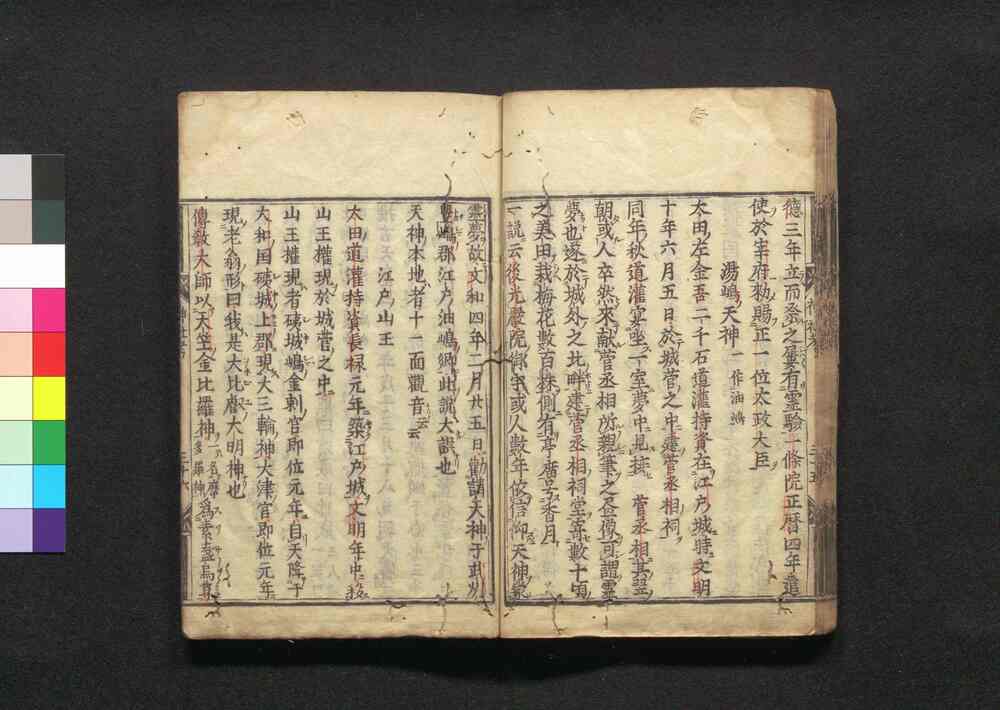 德三年立而祭之屢有靈驗一條院正曆四年遣
使於宰府勑賜正一位太政大臣
湯嶋天神 一作油嶋
太田左金吾二千石道灌持資在江戶城時文明
十年六月五日於城營之中建菅丞相祠
同年秋道灌宴坐一室夢中見挨菅丞相甚翌
朝或人卒然來献菅丞相所親筆之畫像可謂靈
夢也遂於城外之北畔建菅丞相祠堂寄數十頃
之美田栽梅花數百株側有亭廣号香月
一說云後光嚴院御宇或人數年依信仰天神蒙
靈夢故文和四年二月廿五日勸請天神于武州
豐嶋郡江戶油嶋鄉此說大誤也
天神本地者十一面觀音云云
江戶山王
太田道灌持資長禄元年築江戶城文明年中
山王權現於城營之中
山王權現者磯城嶋金刺宮即位元年自天降于
大和国磯城上郡現大三輪神大津宮即位元年
現老翁形曰我是大比叡大明神也
傳敎大師以天竺金比羅神 一名摩多羅神 爲素盞烏尊
神社考
三十五
三十六